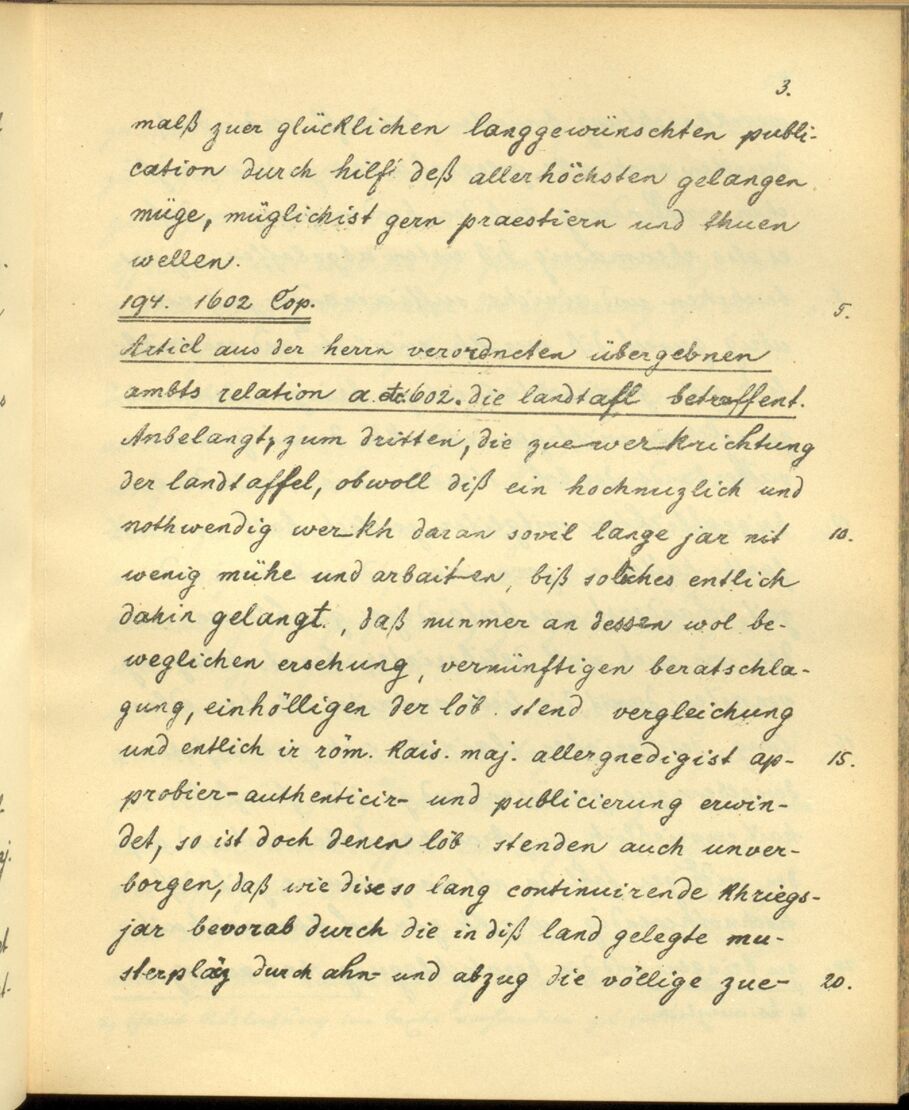 3.
malß zuer glücklichen langgewünschten publi-
cation durch hilf deß allerhöchsten gelangen
müge, müglichist gern praestiern und thuen
wellen.
194. 1602 Cop. 5.
Articl aus der herrn verordneten übergebnen
ambts relation a. etc 602. die landtafl betreffent.
Anbelangt, zum dritten, die zuewerkrichtung
der landtaffel, obwoll diß ein hochnuzlich und
nothwendig werkh daran sovil lange jar nit 10.
wenig mühe und arbaiten, biß solches entlich
dahin gelangt, daß nunmer an dessen wol be-
weglichen ersehung, vernünftigen beratschla-
gung, einhölligen der löb. stend vergleichung
und entlich ir röm. kais. maj. allergnedigist ap- 15.
probier- authenticir- und publicierung erwin-
det, so ist doch denen löb stenden auch unver-
borgen, daß wie dise so lang continuirende khriegs-
jar bevorab durch die in diß land gelegte mu-
sterpläz durch ahn- und abzug die völlige zue- 20.